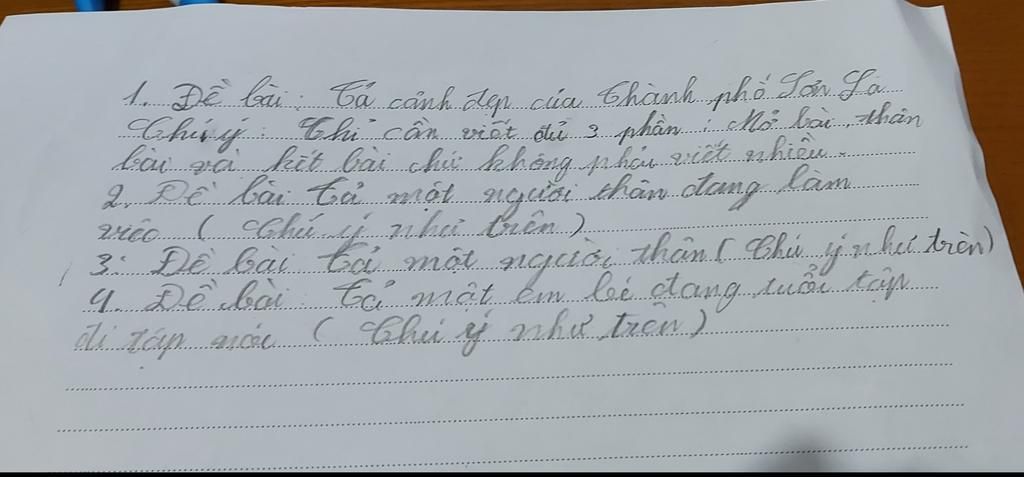 1. Đề bài: Tả cảnh đẹp của Thành phố Sơn La
Chú ý: Chỉ cần viết đủ 3 phần: Mở bài, thân
bài và kết bài chứ không phải viết nhiều.
2. Đề bài Tả một người thân đang làm
việc ( Chú ý như trên )
3: Đề bài Tả một người thân ( Chú ý như trên)
4. Đề bài Tả một em bé đang tuổi tập
đi tập nói ( Chú ý như trên )